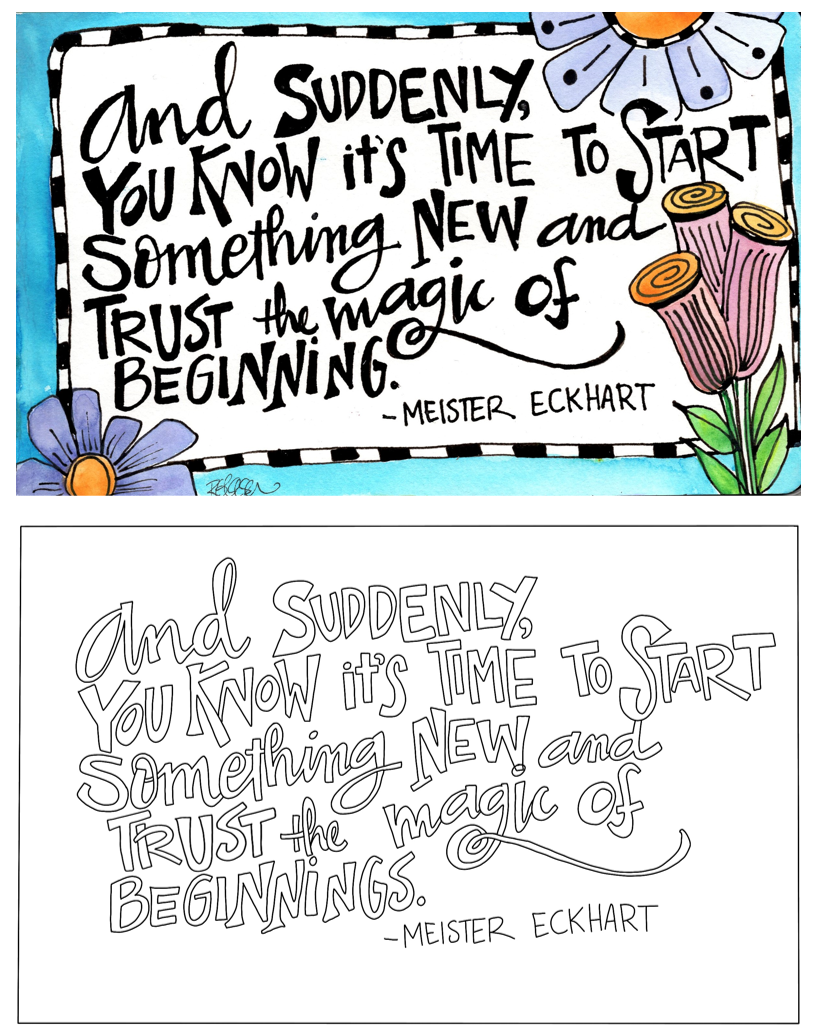 and SUDDENLY,
YOU KNOW it's TIME TO START
Something NEW and
TRUST the magic of
BEGINNING.
-MEISTER ECKHART
and SUDDENLY,
YOU KNOW it's TIME TO START
Something NEW and
TRUST the magic of
BEGINNINGS.
-MEISTER ECKHART